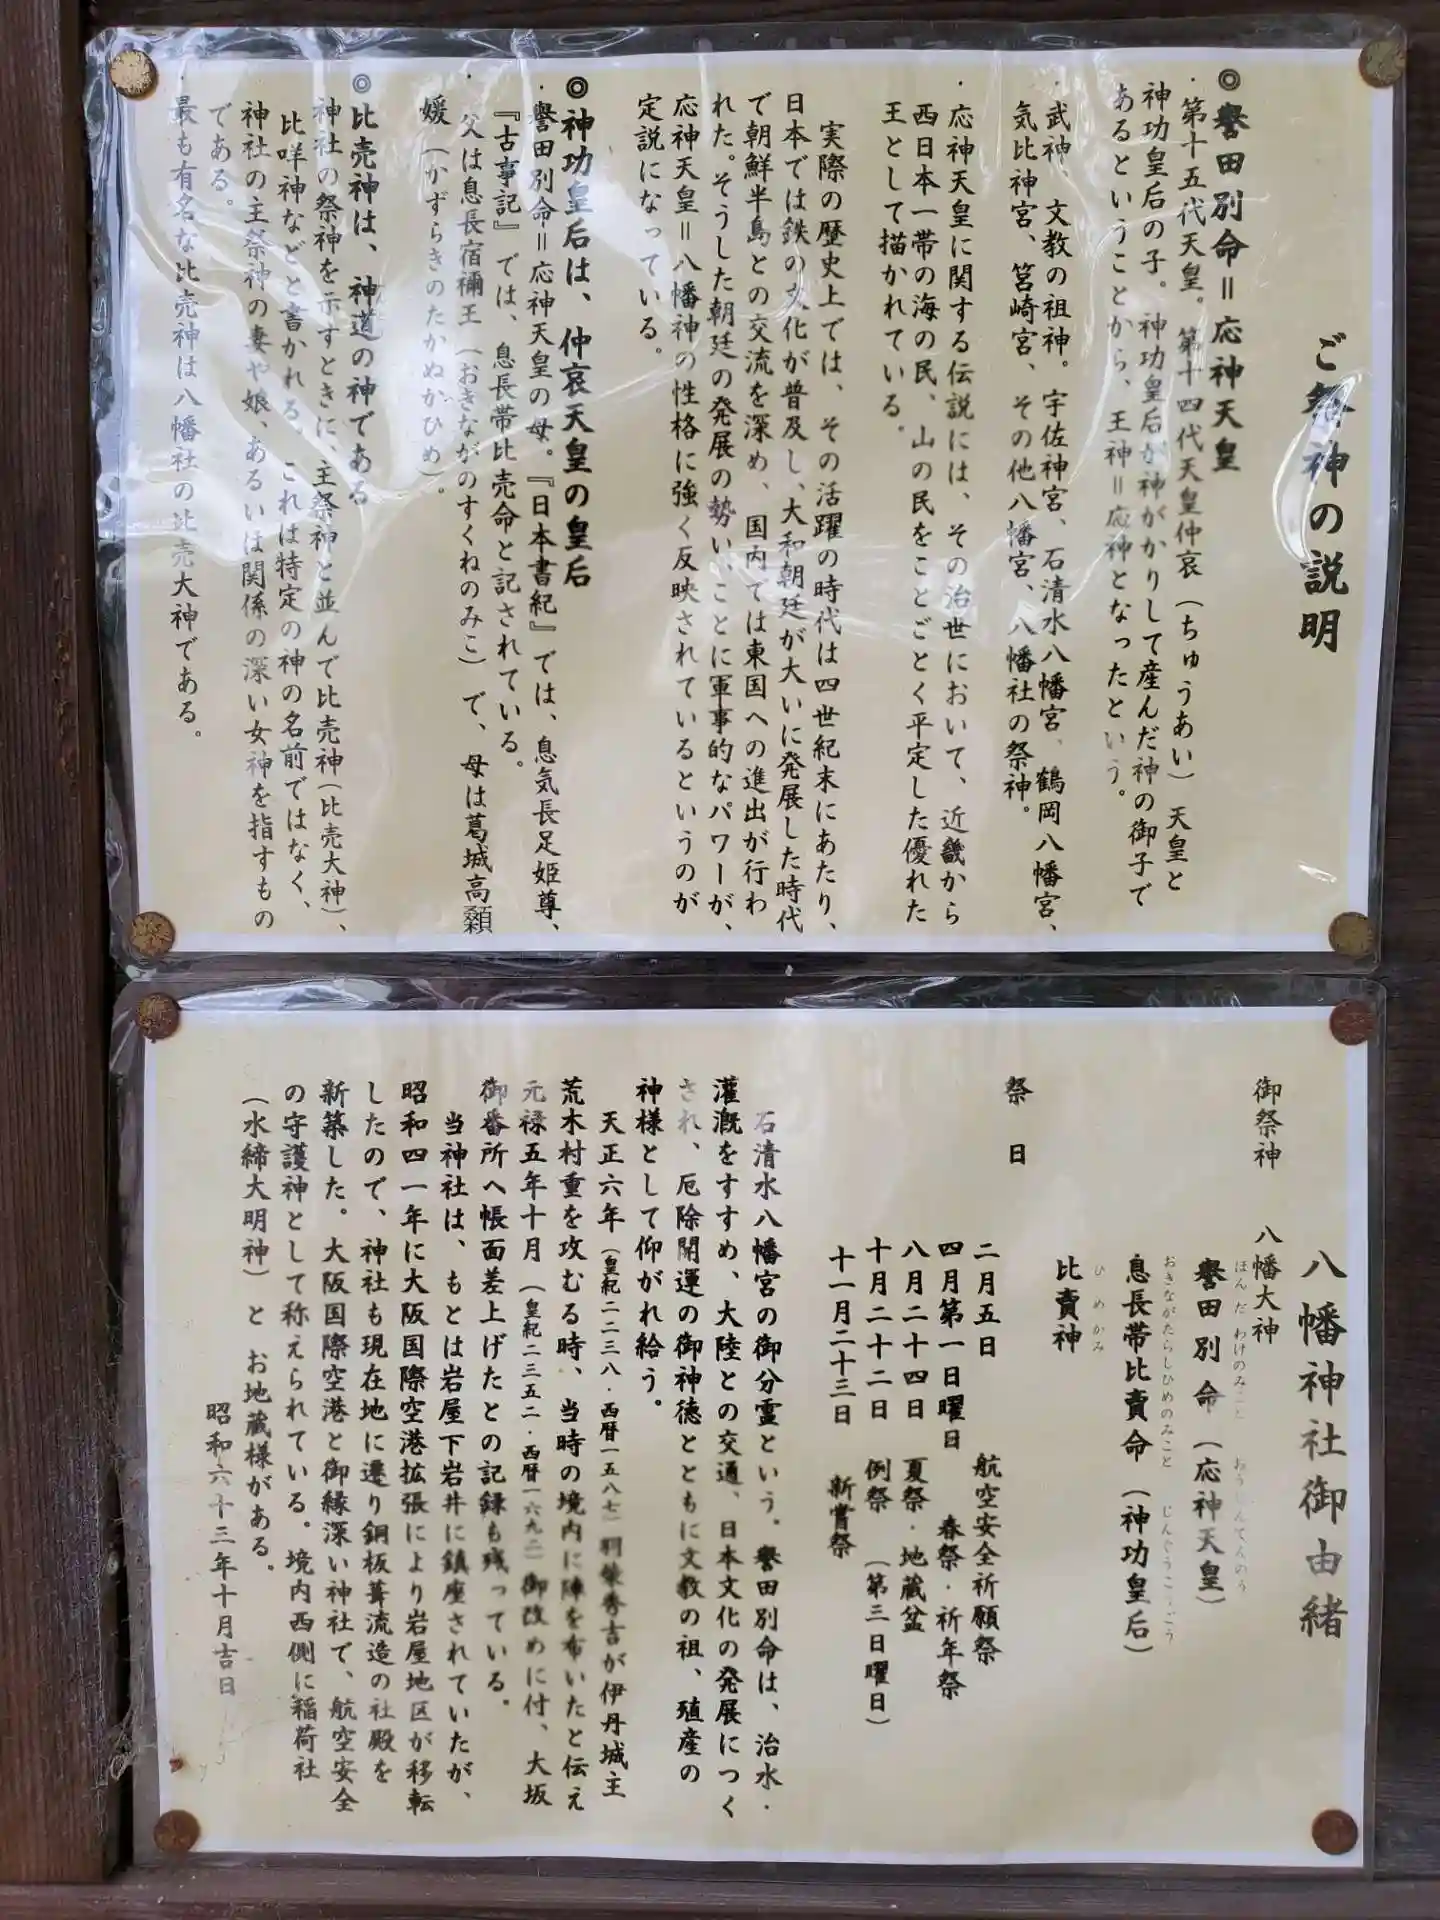 ご祭神の説明
◎誉田別命＝応神天皇
・第十五代天皇。第十四代天皇仲哀（ちゅうあい）天皇と
神功皇后の子。神功皇后が神がかりして産んだ神の御子で
あるということから、王神＝応神となったという。
・武神、文教の祖神。宇佐神宮、石清水八幡宮、鶴岡八幡宮、
気比神宮、筥崎宮、その他八幡宮、八幡社の祭神。
・応神天皇に関する伝説には、その治世において、近畿から
西日本一帯の海の民、山の民をことごとく平定した優れた
王として描かれている。
実際の歴史上では、その活躍の時代は四世紀末にあたり、
日本では鉄の文化が普及し、大和朝廷が大いに発展した時代
で朝鮮半島との交流を深め、国内では東国への進出が行わ
れた。そうした朝廷の発展の勢い、ことに軍事的なパワーが、
応神天皇＝八幡神の性格に強く反映されているというのが
定説になっている。
◎神功皇后は、仲哀天皇の皇后
・譽田別命＝応神天皇の母。『日本書紀』では、息気長足姫尊、
『古事記』では、息長帯比売命と記されている。
・父は息長宿禰王（おきながのすくねのみこ）で、母は葛城高顙
媛（かずらきのたかぬかひめ）。
◎比売神は、神道の神である
神社の祭神を示すときに、主祭神と並んで比売神（比売大神）、
比咩神などと書かれる。これは特定の神の名前ではなく、
神社の主祭神の妻や娘、あるいは関係の深い女神を指すもの
である。
・最も有名な比売神は八幡社の比売大神である。
八幡神社御由緒
御祭神 八幡大神
誉田別命（応神天皇）
ほんだわけのみこと おうじんてんのう
息長帯比賣命（神功皇后）
おきながたらしひめのみこと じんぐうこうごう
比賣神
ひめかみ
祭日
二月五日 航空安全祈願祭
四月第一日曜日 春祭・祈年祭
八月二十四日 夏祭・地蔵盆
十月二十二日 例祭（第三日曜日）
十一月二十三日 新嘗祭
石清水八幡宮の御分霊という。誉田別命は、治水・
灌漑をすすめ、大陸との交通、日本文化の発展につく
され、厄除開運の御神徳とともに文教の祖、殖産の
神様として仰がれ給う。
天正六年（皇紀二二三八・西暦一五八七）羽柴秀吉が伊丹城主
荒木村重を攻むる時、当時の境内に陣を布いたと伝え
元禄五年十月（皇紀二三五二・西暦一六九二）御改めに付、大坂
御番所へ帳面差上げたとの記録も残っている。
当神社は、もとは岩屋下岩井に鎮座されていたが、
昭和四一年に大阪国際空港拡張により岩屋地区が移転
したので、神社も現在地に遷り銅板葺流造の社殿を
新築した。大阪国際空港と御縁深い神社で、航空安全
の守護神として称えられている。境内西側に稲荷社
（水締大明神）と お地蔵様がある。
昭和六十三年十月吉日